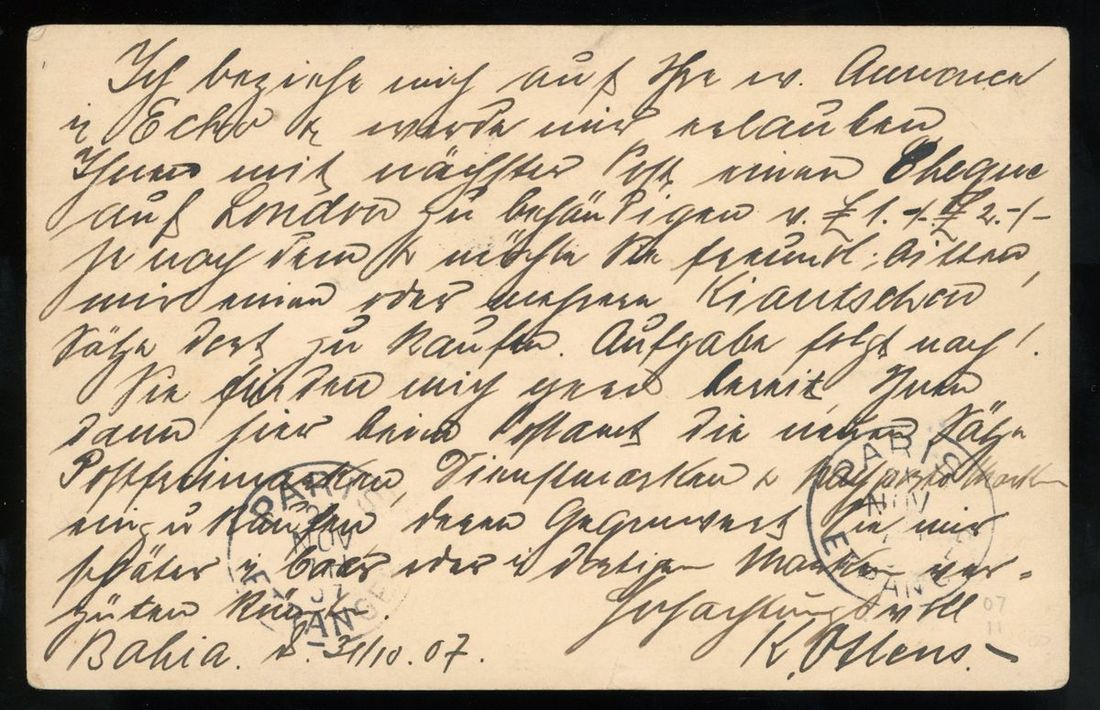 Ich beziehe mich auf Ihre w. Annonce
i Echo & werde mir erlauben
Ihnen mit nächster Post einen Cheque
auf London zu behändigen v. £ 1.-/. £ 2.-/-
je nach dem & möchte Sie freundl. bitten,
mir einen oder mehrere Kiautschou
Sätze dort zu kaufen. Aufgabe folgt nach!
Sie finden mich gern bereit, Ihnen
dann hier beim Postamt die neuen Sätze
Postfreimarken, Dienstmarken & Marken
einzukaufen deren Gegenwert Sie mir
später i baar oder i dortigen Marken ver-
güten
Hochachtungsvoll
Bahia. d. 31/10.07.
K. Ottens.-
PARIS
NOV
07
ETRANGER
PARIS
NOV
ETRANGER
07
11